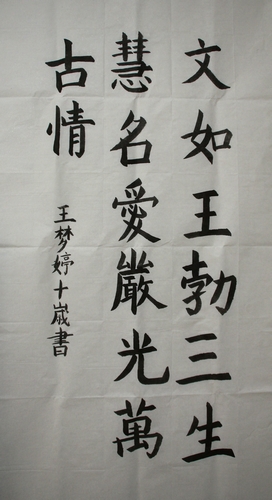 文如王勃三生
慧名愛嚴光萬
古情
王梦婷十歲書